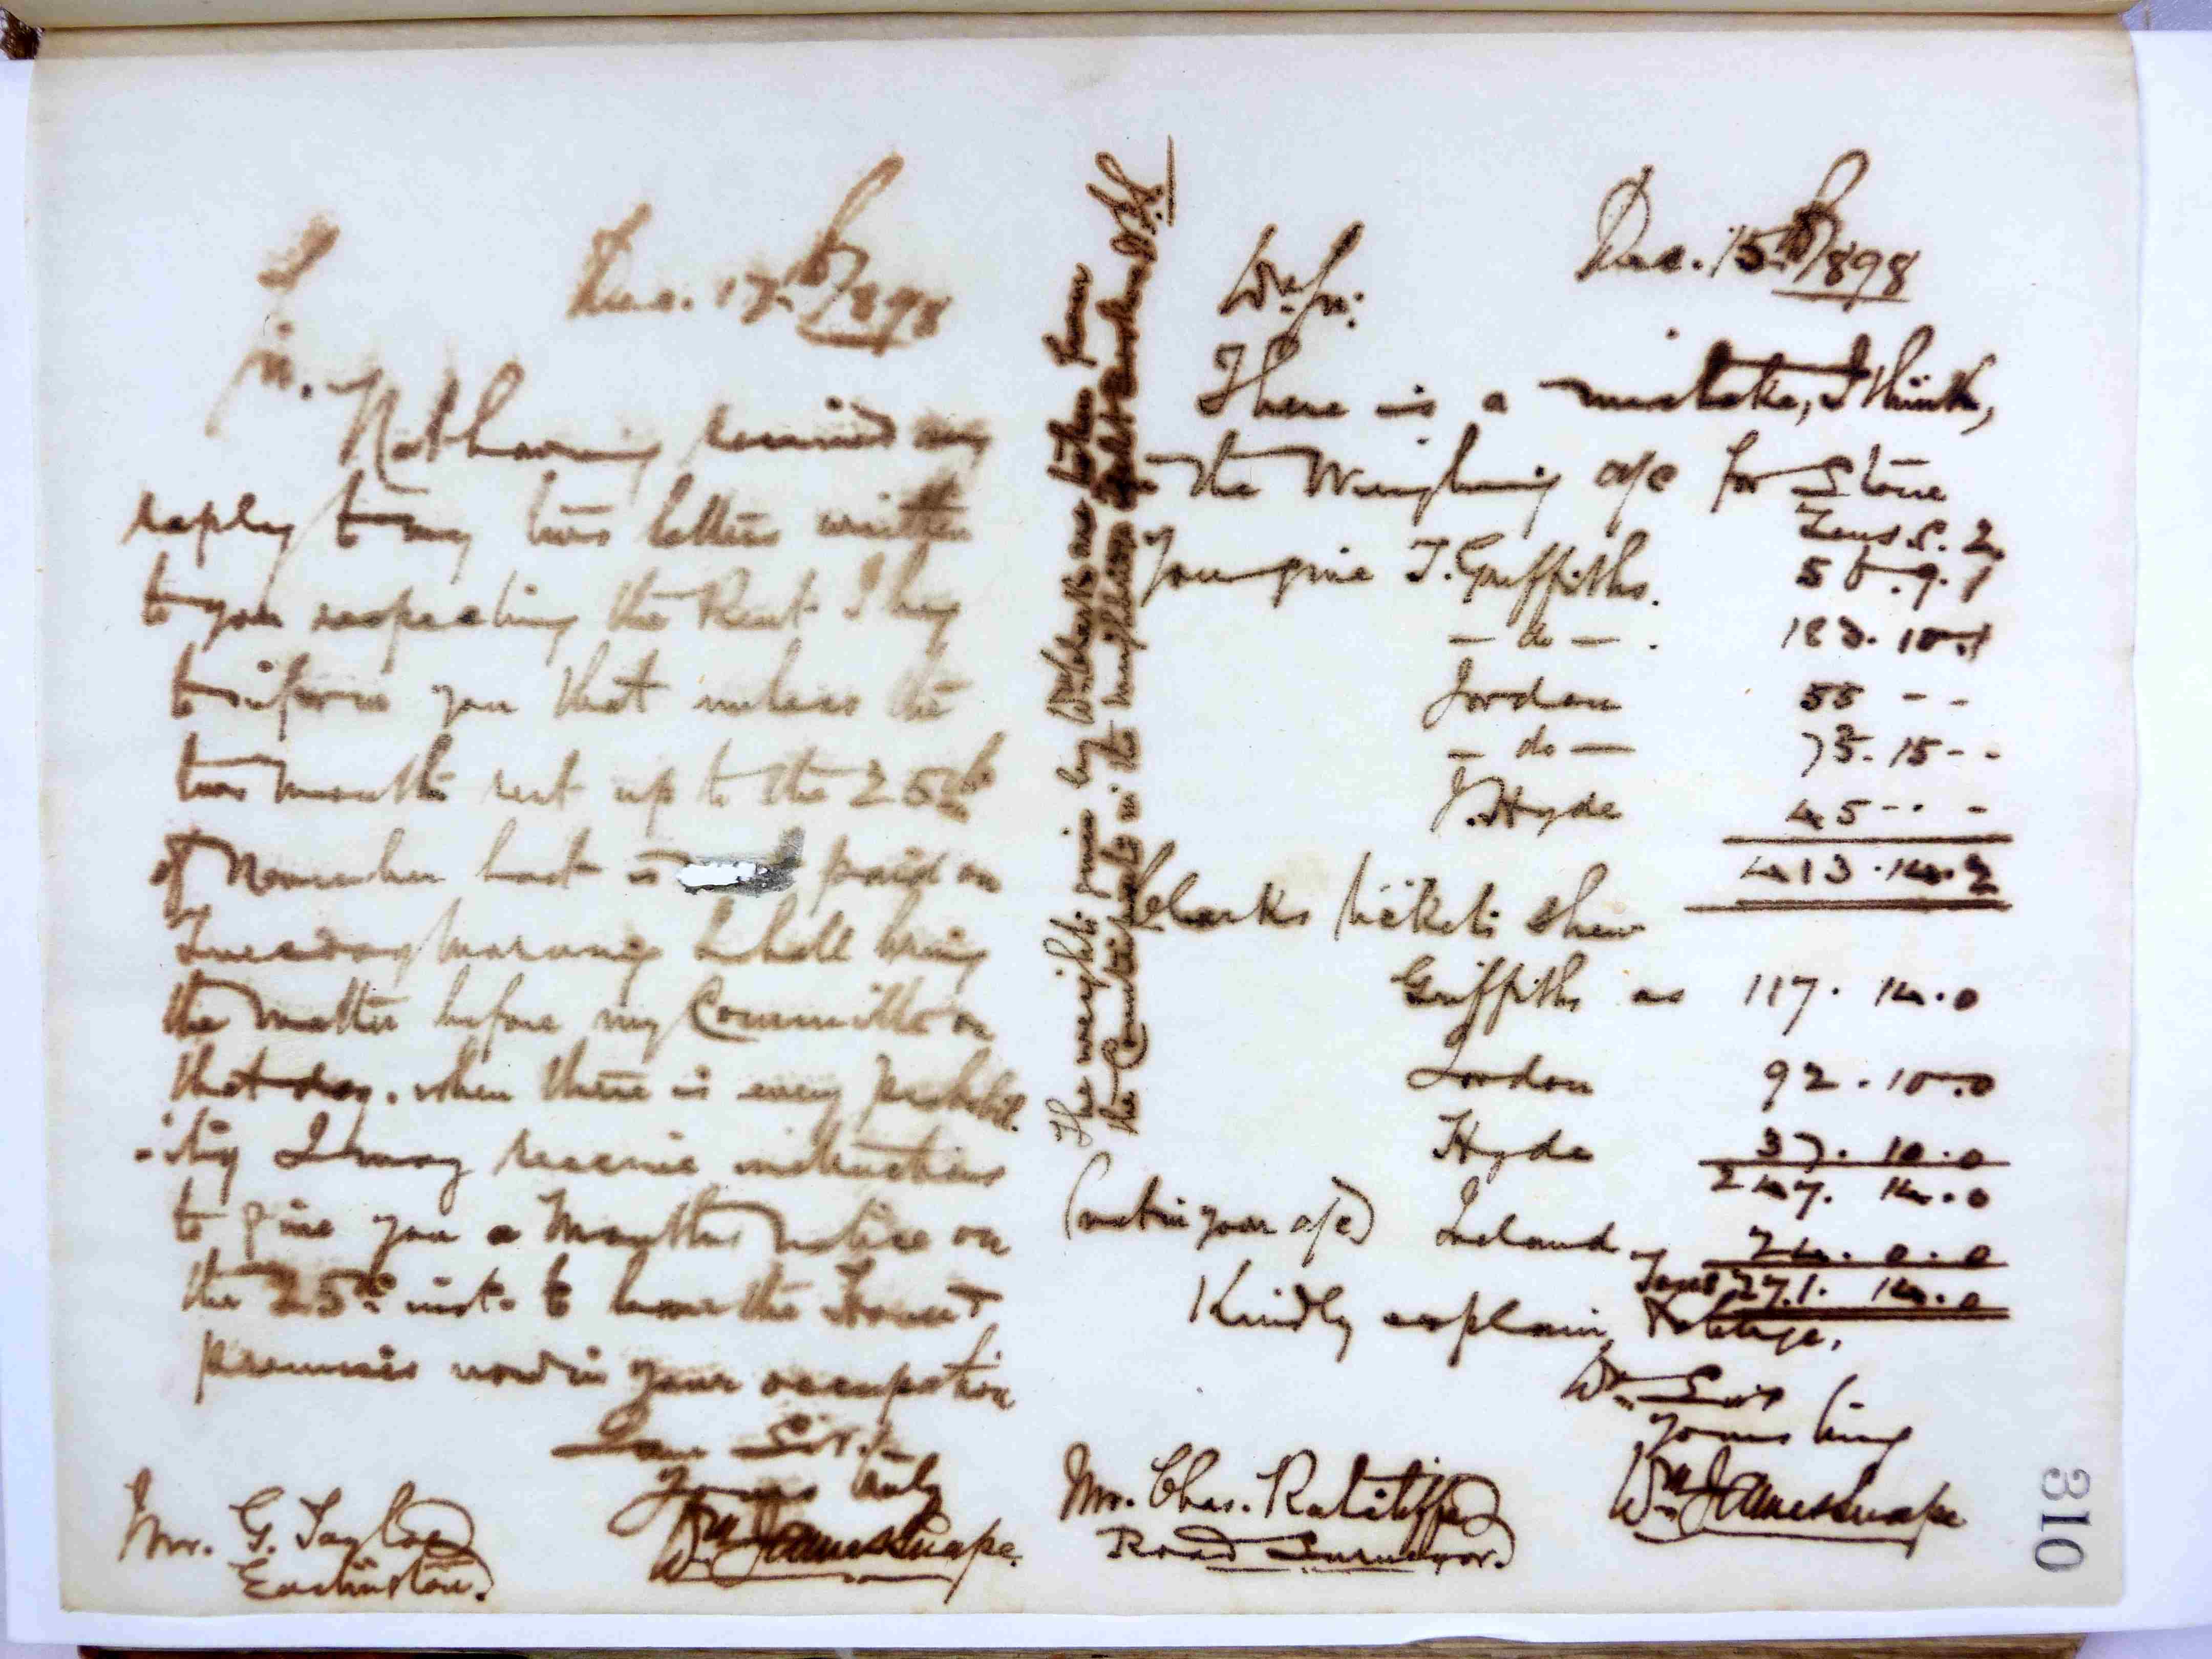 Dec. 17th/1898
Sir.
Not having received any
reply to my two letters written
to you respecting the Rent I beg
to inform you that unless the
two months rent up to the 25th
of November last is paid on
Tuesday morning I shall bring
the matter before my Committee on
that day. when there is every probabil
-ity I may receive instructions
to give you a Months notice on
the 25th inst. to leave the House &
premises now in your occupation
Sir.
Yours truly
Wm James Snape.
Mr. G. Taylor
Eastington.
The weights given by Wm Clark are taken from
the Committee in the
Dec. 15th/1898
Dr Sir:
There is a mistake, I think,
in the Weighing a/c for Stone
Tons c. 2
You give T. Griffiths. .9.1
— do — . 183.10.1
Jordan 55 - -
— do — 75.15 - -
J. Hyde 45 - - -
413.14.2
Clarks tickets shew
Griffiths as 117. 14.0
Jordan 92.10.0
Hyde 37. 10.0
247. 14.0
(not in your a/c) Ireland 24.0.0
Tons 271. 14.0
Kindly explain,
Dr Sir
Yours truly
Wm James Snape
Mr. Chas. Ratcliffe
Road Surveyor.
310